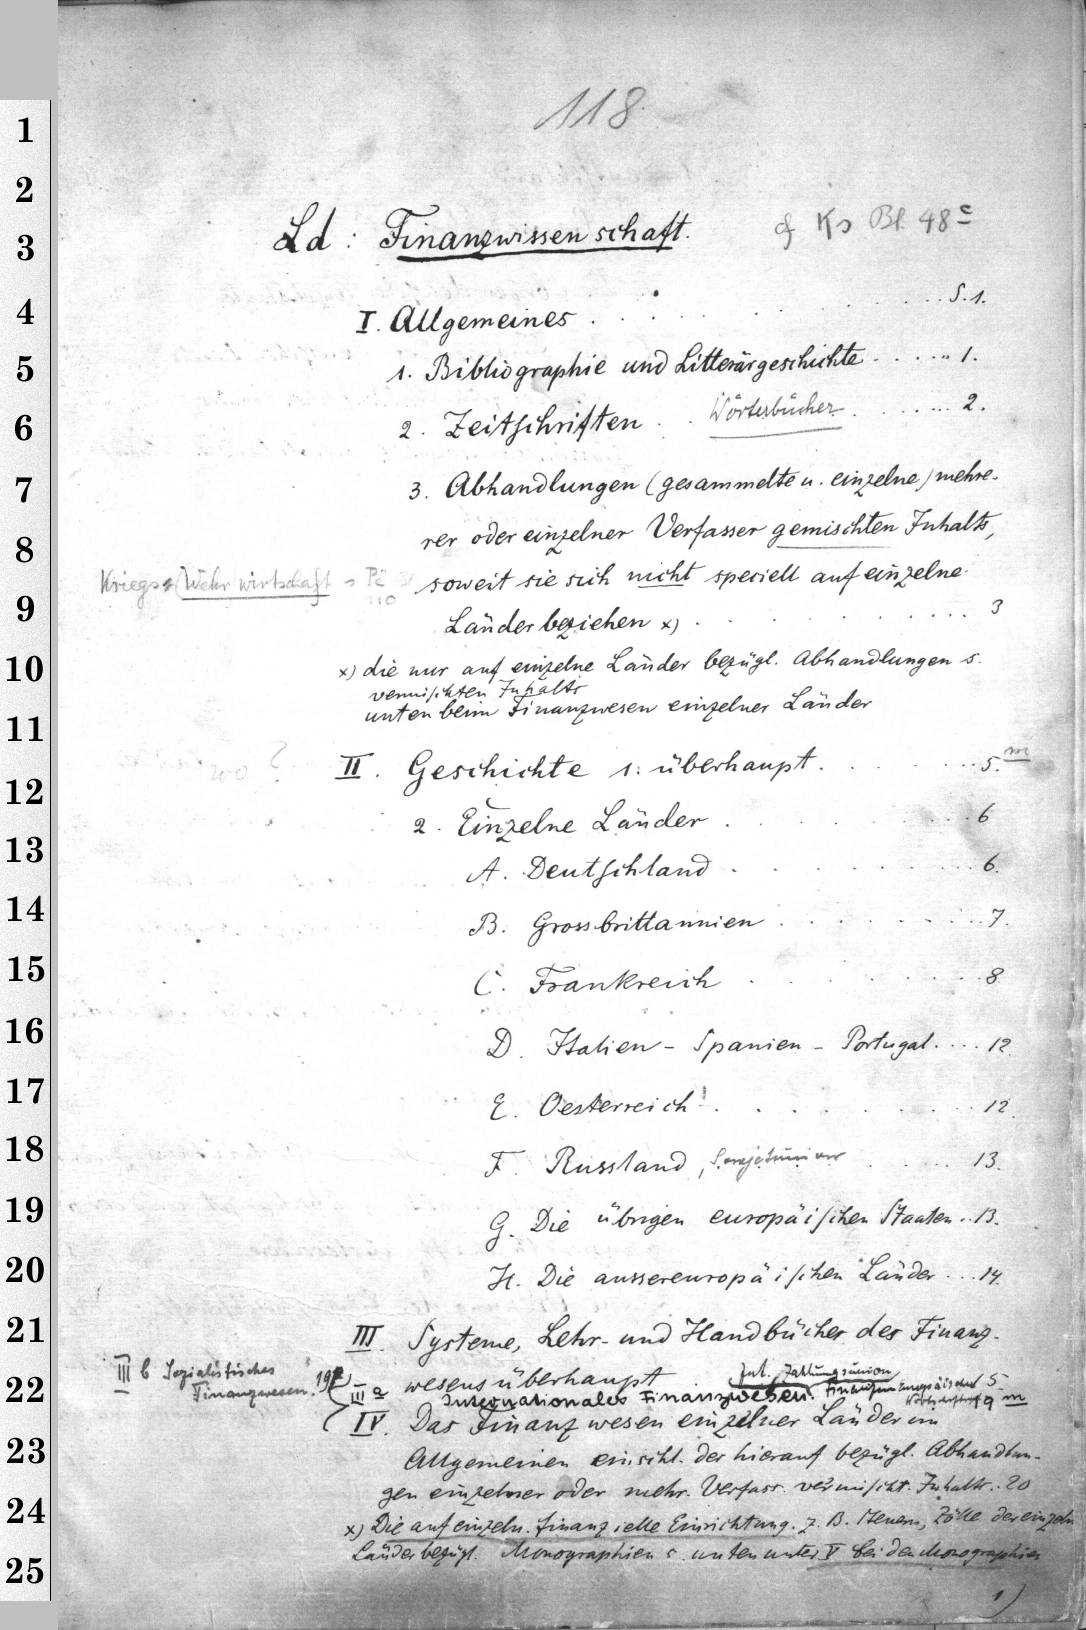 118
Ld : Finanzwissenschaft. cf Ks Bl. 48c
I. Allgemeines . . . . . . S. 1.
1. Bibliographie und Litterärgeschichte . . . . . 1.
2. Zeitschriften . . Wörterbücher . . . . . 2.
3. Abhandlungen (gesammelte u. einzelne) mehre-
rer oder einzelner Verfasser gemischten Inhalts,
Kriegs- (Wehrwirtschaft
soweit sie sich nicht speciell auf einzelne
Länder beziehen x) . . . . . . 3
x) die nur auf einzelne Länder bezügl. Abhandlungen s.
vermischten Inhalts
unten beim Finanzwesen einzelner Länder
wo ?
II. Geschichte 1. überhaupt . . . . . 5. m
2. Einzelne Länder . . . . . 6
A. Deutschland . . . . . 6.
B. Grossbrittannien . . . . . 7.
C. Frankreich . . . . . 8
D. Italien - Spanien - Portugal . . . . 12.
E. Oesterreich . . . . . 12.
F. Russland, Sowjetunion . . . . 13.
G. Die übrigen europäischen Staaten . . 13.
H. Die aussereuropäischen Länder . . . 14.
III. Systeme, Lehr- und Handbücher der Finanz-
wesens überhaupt
III b Sozialistisches
Finanzwesen
Int. Zahlungsunion
III a Internationales Finanzwesen. 9 m
IV. Das Finanzwesen einzelner Länder im
Allgemeinen einschl. der hierauf bezügl. Abhandlun-
gen einzelner oder mehr. Verfass. vermischt. Inhalts . . 20
x) Die auf einzeln. finanzielle Einrichtung. z. B. Steuern, Zölle der einzeln
Länder bezügl. Monographien s. unten unter V bei den Monographien
1)